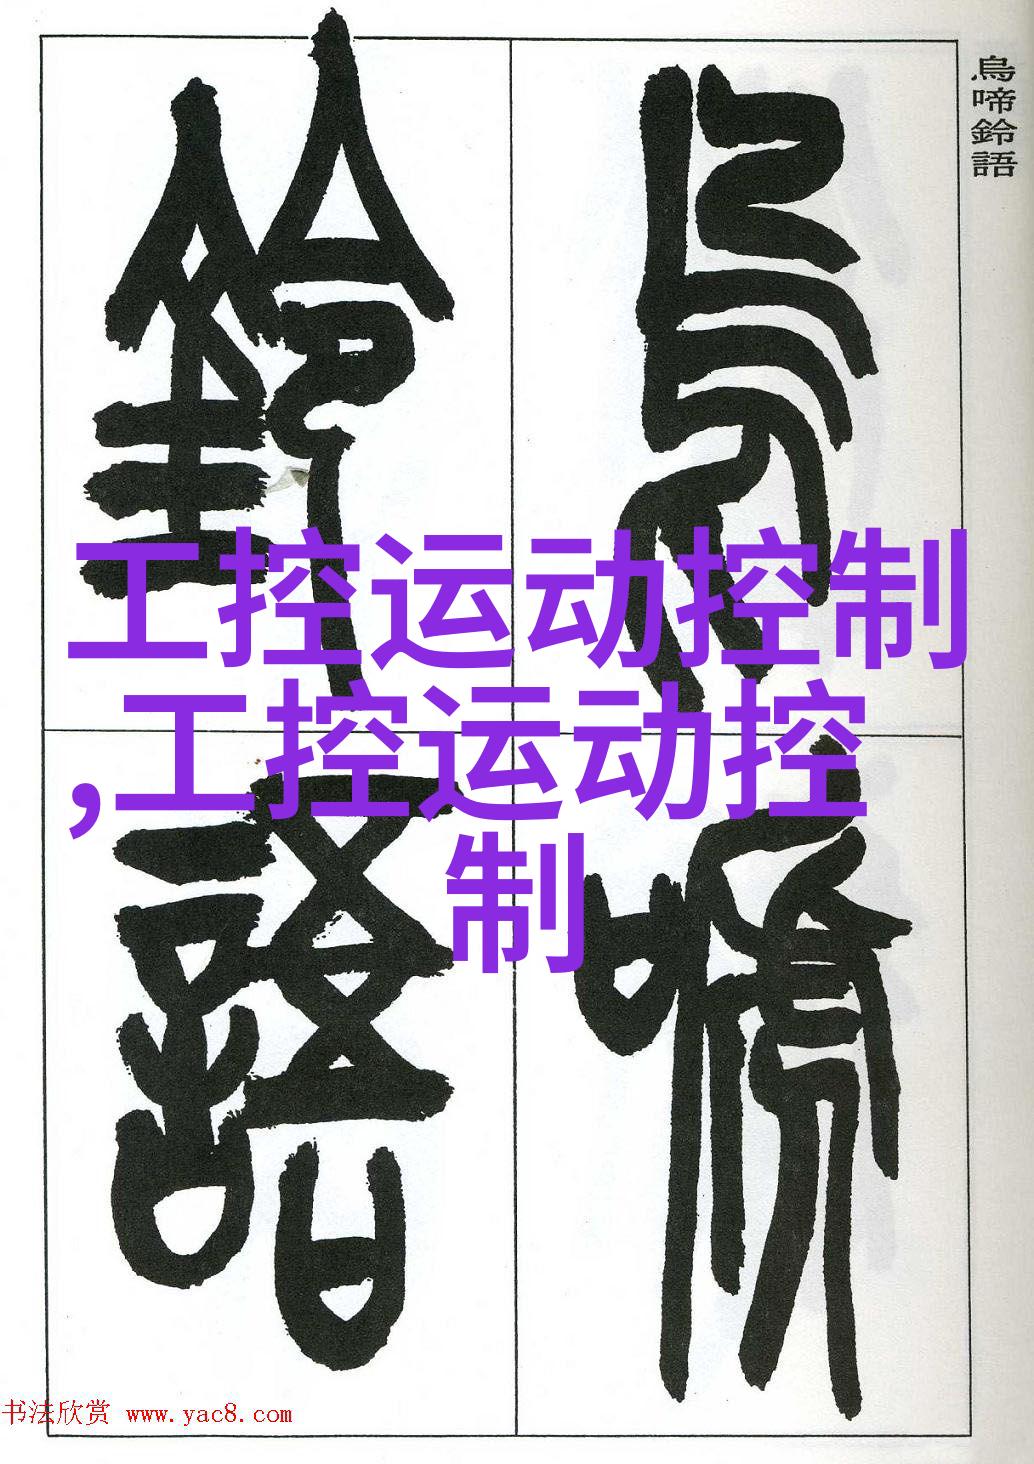 烏啼鈴語
烏啼
鈴語
工控运动控制
,工控运动控
制
书法欣赏 www.yac8.com